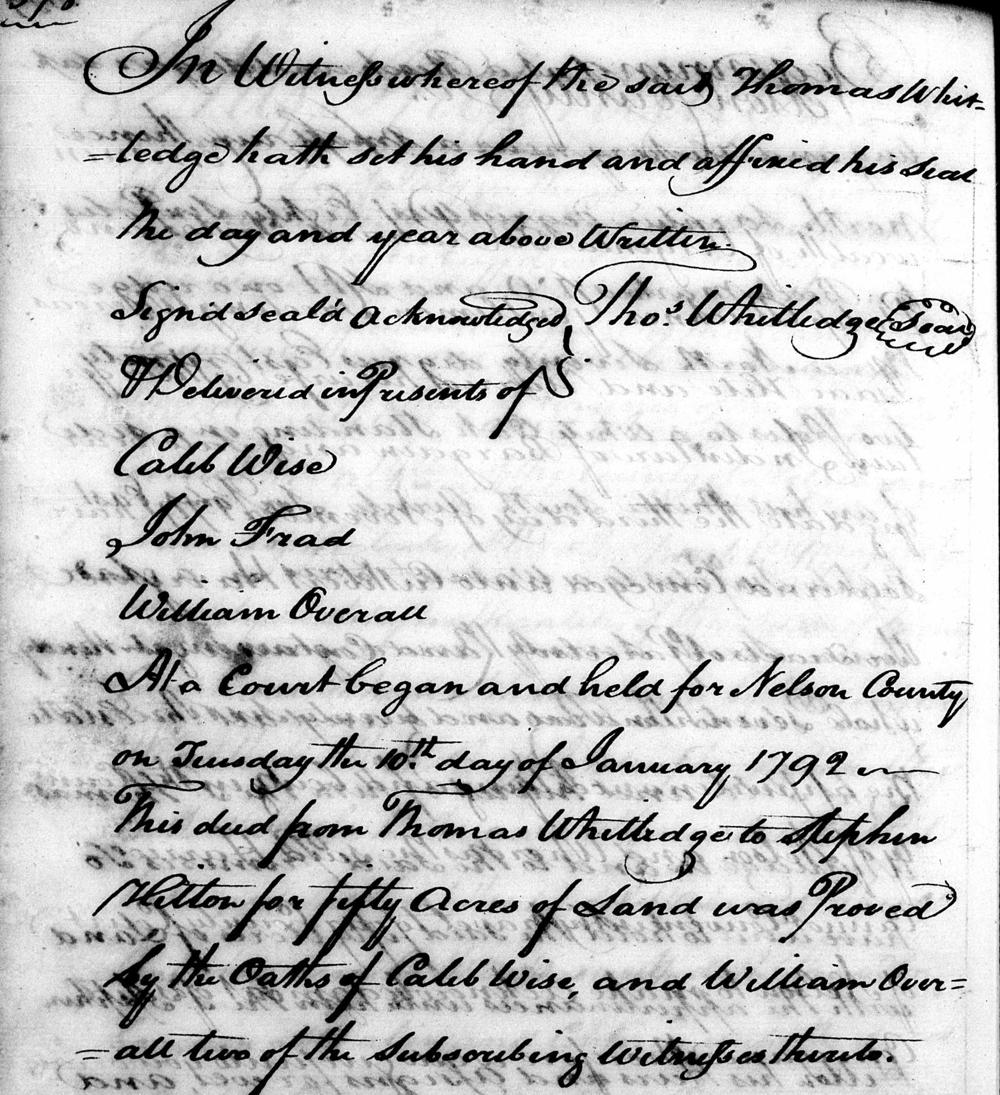 In Witness whereof the said Thomas Whit=
=ledge hath set his hand and affixed his seal
the day and year above Written.
Signd seal'd acknowledged Tho.s Whitledge Seal
& Delivered in Presents of
Caleb Wise
John Frad
William Overall
At a Court began and held for Nelson County
on Tuesday the 10.th day of January 1792
This deed from Thomas Whitledge to Stephen
Hilton for fifty Acres of Land was Proved
by the Oaths of Caleb Wise, and William Over=
=all two of the Subscribing Witnesses thereto.